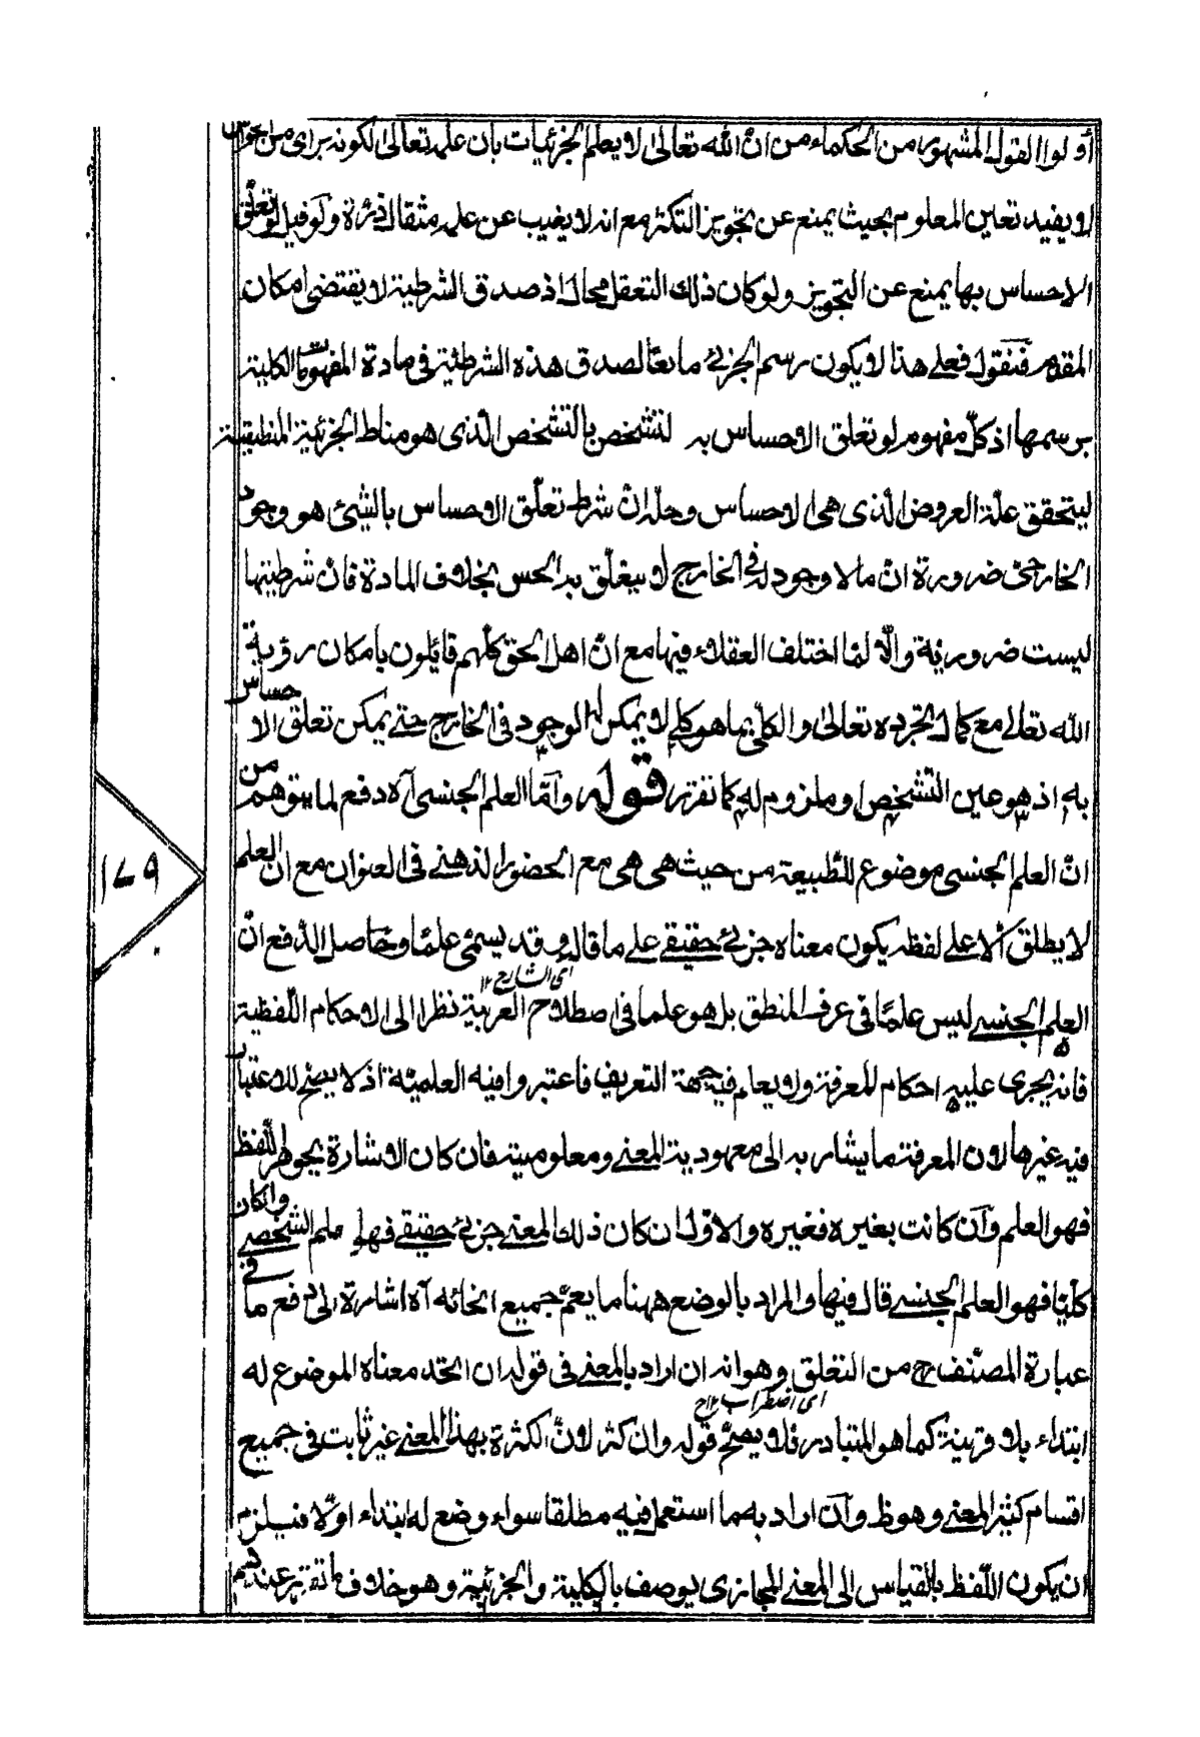 أولوا القول المشهور من الحكماء من ان الله تعالى لا يعلم الجزئيات بان علمه تعالى لكونه براى من الحواس
لا يفيد تعين المعلوم بحيث يمنع عن تجويز التكثر مع انه لا يغيب عن علمه مثقال ذرة ولو قيل لو تعلق
الاحساس بها يمنع عن التجويز ولو كان ذلك التعقل محالا اذ صدق الشرطية لا يقتضى امكان
المقدم فنقول فعلى هذا لا يكون رسم الجزئى مانعا لصدق هذه الشرطية فى مادة المفهومات الكلية
برسمها اذ كل مفهوم لو تعلق الاحساس به لتشخص بالتشخص الذى هو مناط الجزئية المنطقية
ليتحقق علة العروض الذى هى الاحساس وحله ان شرط تعلق الاحساس بالشئ هو وجود
الخارجى ضرورة ان ما لا وجود له فى الخارج لا يتعلق به الحس بخلاف المادة فان شرطيتها
ليست ضرورية والا لما اختلف العقلاء فيها مع ان اهل الحق كلهم قائلون بامكان رؤية
الله تعالى مع كمال تجرده تعالى والكلى بما هو كلى لا يمكن له الوجود فى الخارج حتى يمكن تعلق الاحساس
به اذ هو عين التشخص او ملزوم له كما تقرر قوله واما العلم الجنسى آه دفع لما يتوهم من
ان العلم الجنسى موضوع للطبيعة من حيث هى هى مع الحضور الذهنى فى العنوان مع ان العلم
لا يطلق الا على لفظ يكون معناه جزئى حقيقى على ما قاله وقد يسمى علما وحاصل الدفع ان
اى الشارح ١٢
العلم الجنسى ليس علما فى عرف المنطق بل هو علما فى اصطلاح العربية نظرا الى الاحكام اللفظية
فانه يجرى عليه احكام المعرفة ولا يعلم فيه جهة التعريف فاعتبروا فيه العلمية اذ لا يصح للاعتبار
فيه غيرها لان المعرفة ما يشار به الى معهودية المعنى ومعلوميته فان كان الاشارة بجوهر اللفظ
فهو العلم وان كانت بغيره فغيره والاول ان كان ذلك المعنى جزئى حقيقى فهو علم الشخصى وان كان
كليا فهو العلم الجنسى قال فيها والمراد بالوضع ههنا ما يعم جميع انحائه آه اشارة الى دفع ما فى
عبارة المصنف رح من التغلق وهو انه ان اراد بالمعنى فى قوله ان اتحد معناه الموضوع له
اى اضطراب ١٢ ح
ابتداء بلا قرينة كما هو المتبادر فلا يصح قوله وان كثر لان الكثرة بهذا المعنى غير ثابت فى جميع
اقسام كثير المعنى وهو ظ وان اراد به ما استعمل فيه مطلقا سواء وضع له ابتداء او لا فيلزم
ان يكون اللفظ بالقياس الى المعنى المجازى يوصف بالكلية والجزئية وهو خلاف ما تقرر عندهم
١٧٩